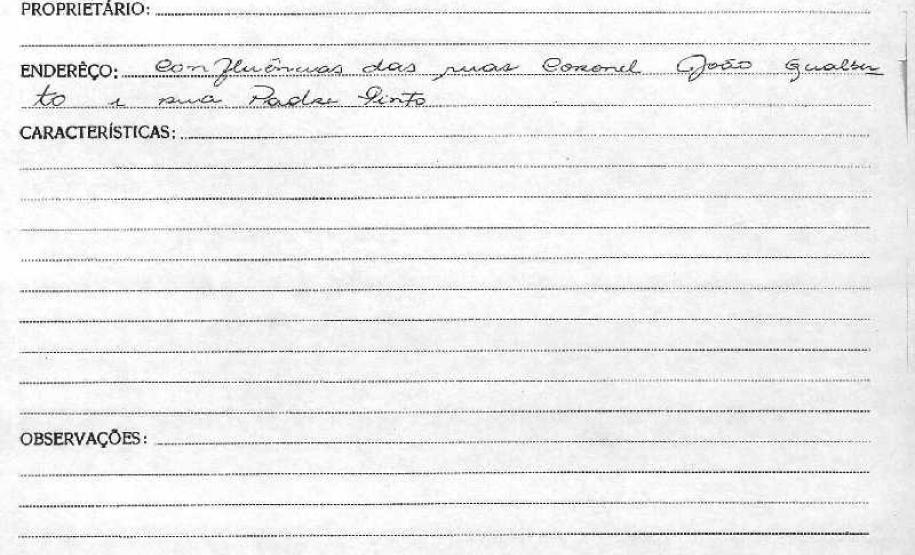 PROPRIETÁRIO:
ENDERÊÇO: Confluências das ruas Coronel João Gualber
to e rua Padre Pinto
CARACTERÍSTICAS:
OBSERVAÇÕES: